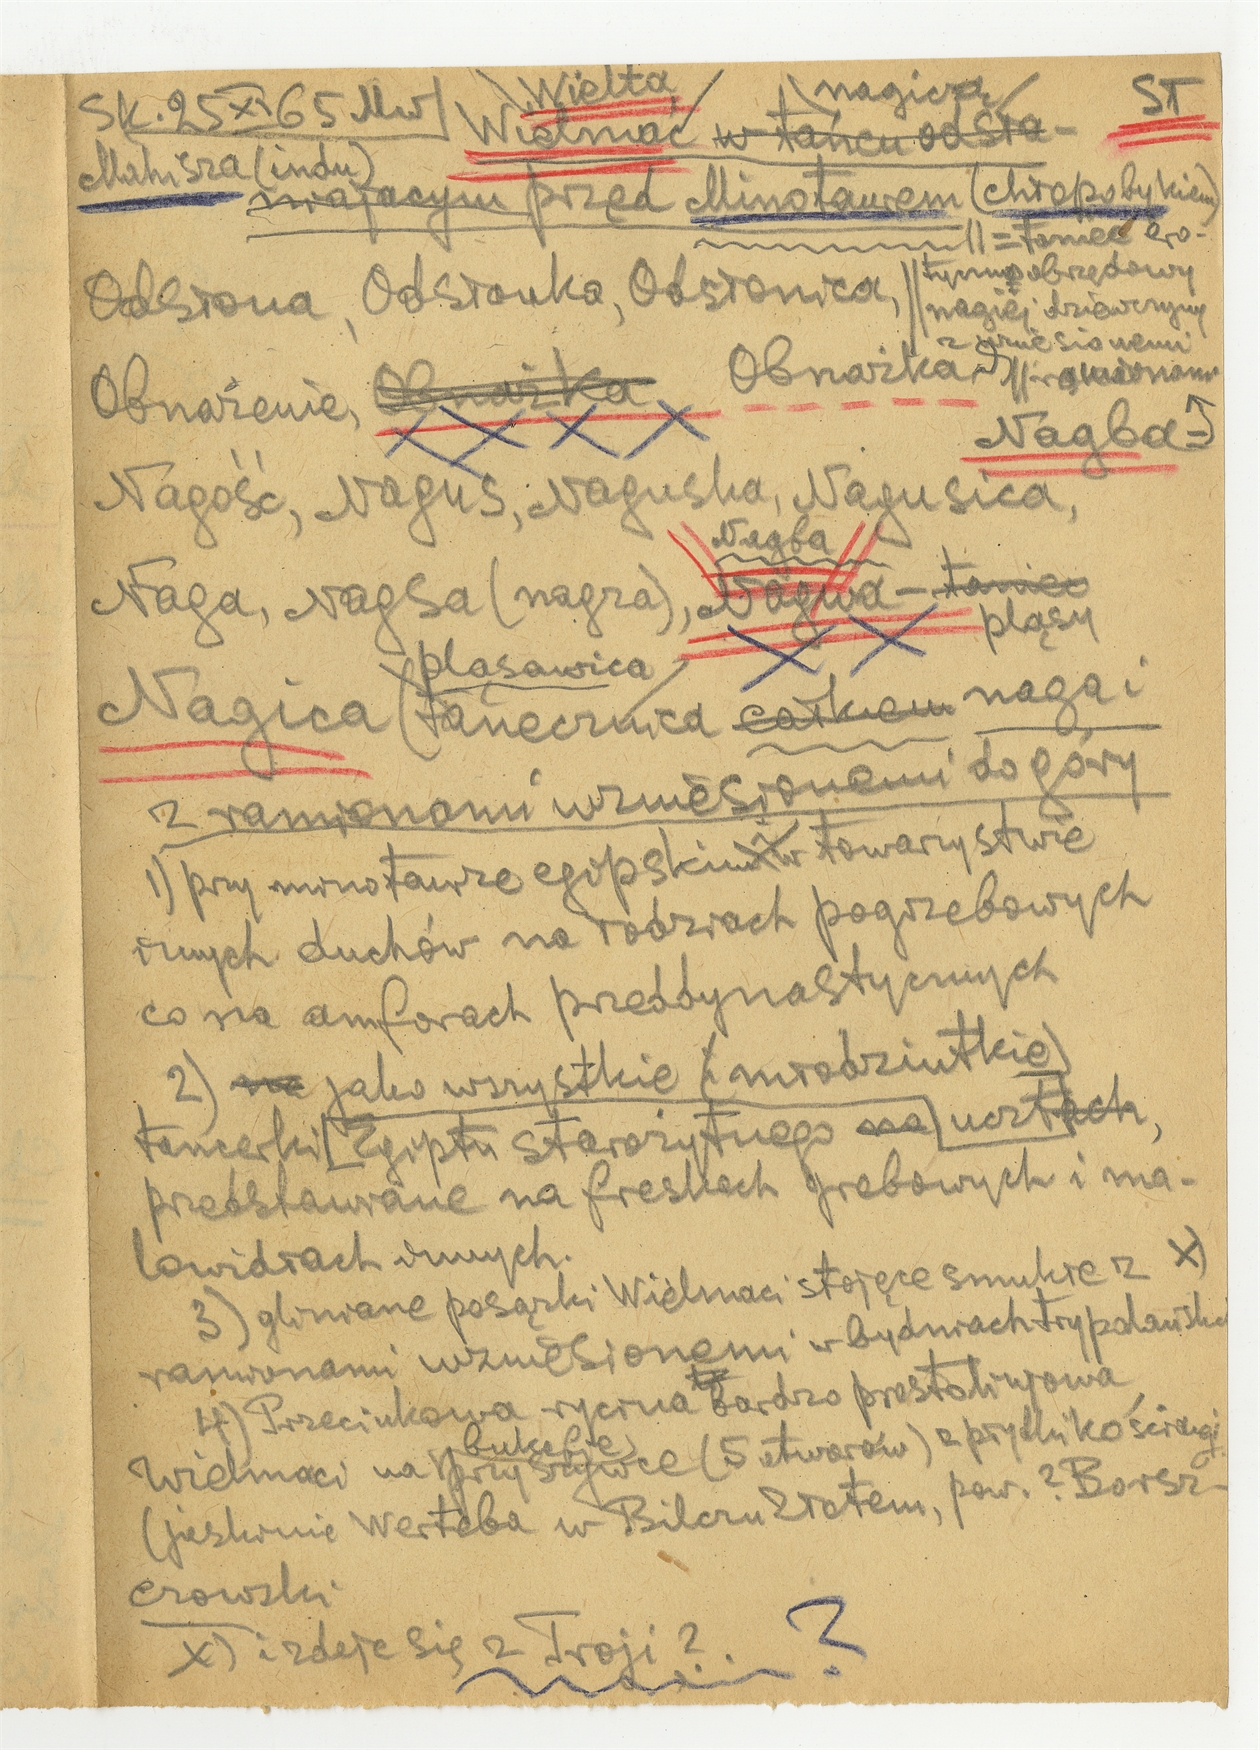 Sk. 25 XI 65 Mw
Wielta
nagicą
ST
Wielmać w tańcu odsła-
Mahisza (indu)
niającym przed Minotaurem (chłopobykiem)
= taniec ero-
tyczno obrzędowy
nagiej dziewczyny
z wzniesionemi
ramionami
Odsłona, Odsłonka, Odsłonica,
Obnażenie, Obnażka Obnażka
Nagba
Nagość, Nagus, Naguska, Nagusica,
Nagba
Naga, Nagsa (nagza), Nagwa – taniec
pląsy
pląsawica
Nagica (tanecznica całkiem naga i
z ramionami wzniesionemi do góry
1) przy minotaurze egipskim i w towarzystwie
innych duchów na łodziach pogrzebowych
co na amforach przeddynastycznych
2) na jako wszystkie (młodziutkie)
tancerki [Egiptu starożytnego na] ucztach,
przedstawiane na freskach grobowych i ma-
lowidłach innych.
3) gliniane posążki Wielmaci stojące smukłe z x)
ramionami wzniesionemi w bydniach trypolańskich
4) Przecinkowa rycina bardzo prostolinijowa
bukefie
Wielmaci na przyszywce (5 otworów) z płytki kościanej
(jaskinie Werteba w Bilczu Złotem, pow. ? Borsz-
czowski
x) i zdaje się z Troji ? ?